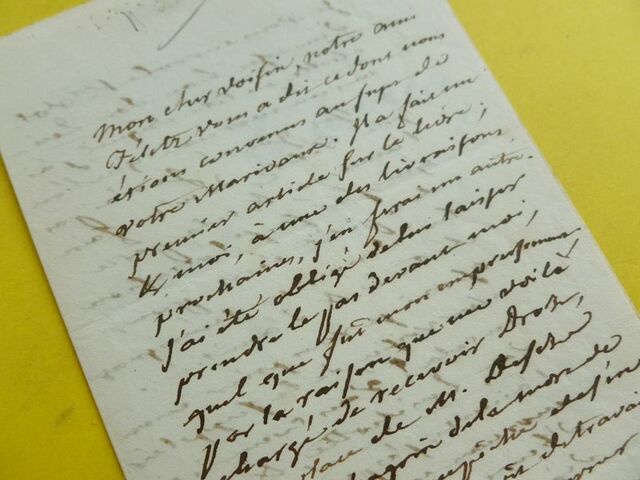 Mon cher voisin, notre ami
vous a dit ce dont nous
étions convenus au sujet de
votre Marivaux. Il a fait un
premier article sur le livre;
& moi, à une des livraisons
prochaines, j'en ferai un autre.
J'ai été obligé de lui laisser
prendre le pas devant moi,
quel que fut mon empressement
Par la raison que me voilà
chargé de recevoir Droz,
place de M.
de la mort de
de travai